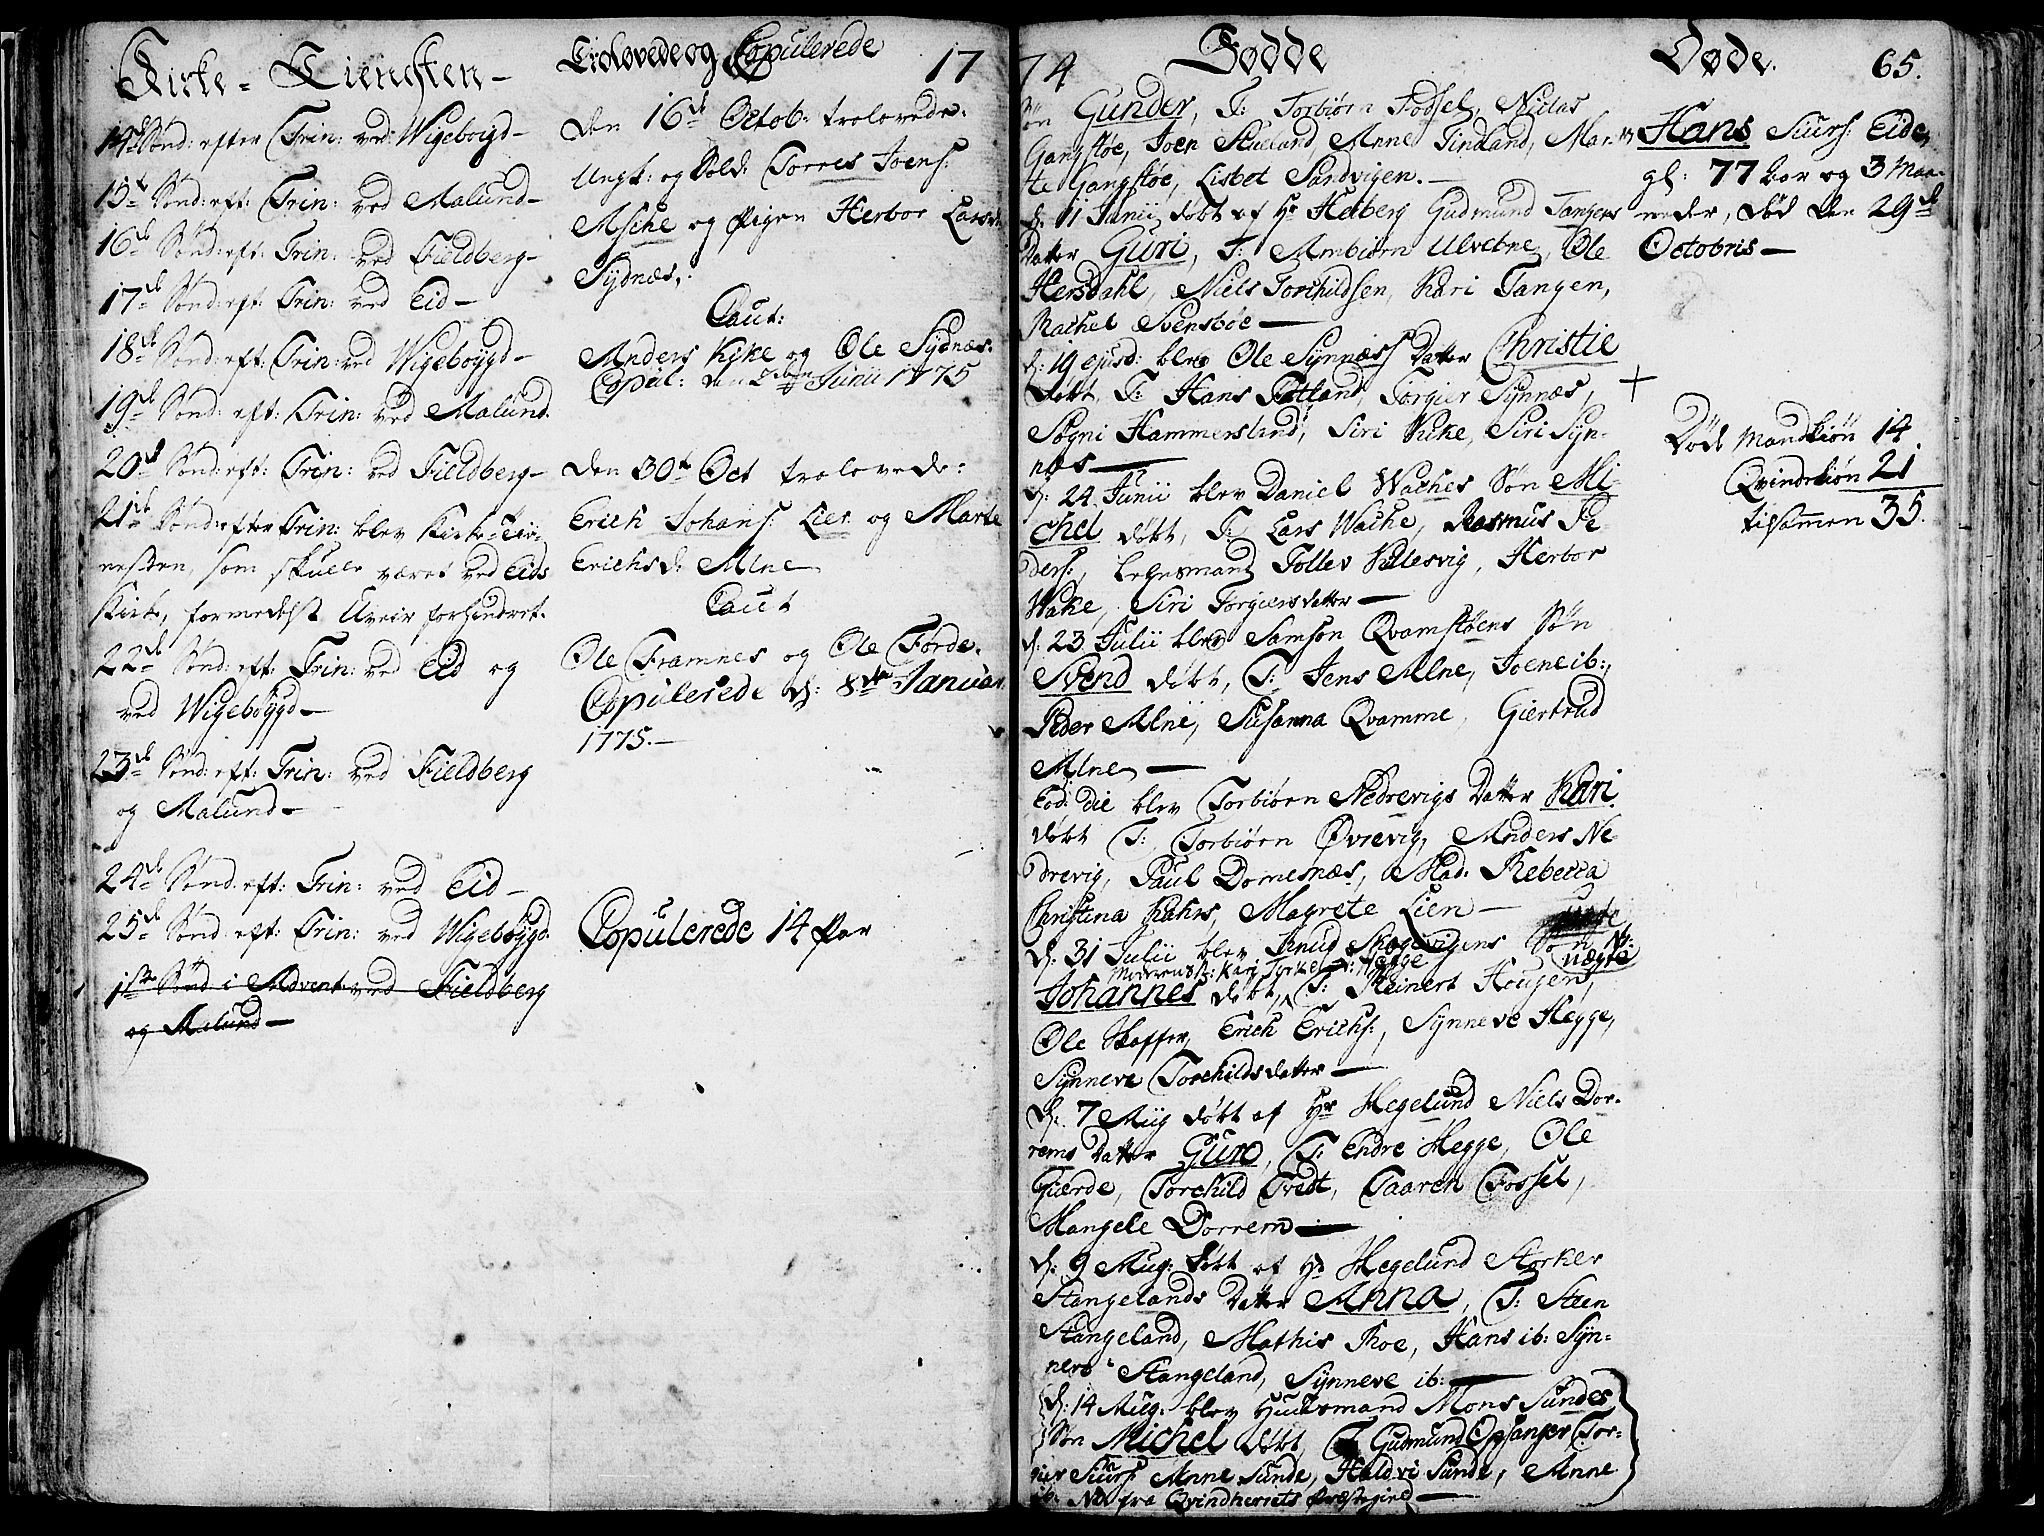 Kirke-Tienesten
14de Sønd: efter Trin: ved Wigeboigd
15de Sønd: eft: Trin: ved Malund
16de Sønd: eft: Trin: ved Fieldberg
17de Sønd: eft: Trin: ved Eid
18de Sønd: eft: Trin: ved Wigebøygd
19de Sønd: eft: Trin: ved Malund
20de Sønd: eft: Trin: ved Fieldberg
21de Sønd: efter Trin: blev Kirke-Tie-
nesten, som skulle været ved Eids
Kirke, formedelst Uveir forhindret.
22de Sønd: eft: Trin: ved Eid og
ved Wigebøygd
23de Sønd: eft: Trin: ved Fieldberg
og Malund
24de Sønd: eft: Trin: ved Eid
25de Sønd: eft: Trin: ved Wigebøygd
1ste Sønd i Advent ved Fieldberg
og Malund
Trolovede og Copulerede 17
Den 16de Octob: trolovede:
Ungk: og Sold: Torres Joens:
Msche og Pigen Herbor Larsd:
Sydnæs:
Caut:
Anders Kike og Ole Sydnæs.
Copul: den Junii 1775
Den 30te Oct trolovede:
Erich Johans: Lier og Marte
Erichsd: Alne
Caut
Ole Framnes og Ole Førde.
Copulerede d: 8de Januar
1775.
Copulerede 14 Par
74 Fødde
Søn Gunder, T: Torbiørn Fossel, Niclas
Gangstøe, Joen Skueland, Anne Tindland, Mar-
te Gangstøe, Lisbet Sandvigen.
d: 11 Junii døbt af Hr Heiberg Gudmund Tangens
Datter Guri, T: Ambiørn Ulvebne, Ole
Hersdahl, Niels Torchildsen, Kari Tangen,
Rachel Svensbøe
d: 19 ejusd: blev Ole Synnæss Datter Christie
døbt, T: Hans Fatland, Torgier Synnæs,
Søgni Hammersland, Siri Kike, Siri Syn-
næs
d: 24 Junii blev Daniel Waches Søn Mi-
chel døbt, T: Lars Wache, Rasmus Pe-
ders:, Lehnsmand Tollev Killesvig, Herbor
Wake, Siri Torgiersdatter
d: 23 Julii blev Samson Qvamstøens Søn
Svend døbt, T: Jens Alne, Joen ib:,
Peder Alne, Susanna Qvamme, Giertrud
Alne
Eod: die blev Torbiørn Nedrevigs Datter Kari
døbt T: Torbiørn Øvrevig, Anders Ne-
drevig, Paul Domesnæs, Mad: Rebecca
Christina Kahrs, Magrete Lien
d: 31 Julii blev Knud Skogevigens Søn
uægte
Moderen
Johannes døbt, T: Reinert Hougen,
Ole Skaffer, Erich Erichs:, Synneve Hegge,
Synneve Torchildsdatter
d: 7 Aug døbt af Hr Hegelund Niels Dor-
rems Datter Guro, T: Endre Hegge, Ole
Gierde, Torchild Tvedt, Taaren Fossel,
Mangele Dorrem
d: 9 Aug: døbt af Hr Hegelund Størker
Stangelands Datter Anna, T: Steen
Stangeland, Mathis Roe, Hans ib: Syn-
neve Stangeland, Synneve ib:
d: 14 Aug: blev Huusmand Mons Sundes
Søn Michel døbt, T: Gudmund Opsanger Tor-
gier Siurs: Anne Sunde, Haldvi Sunde, Anne
ib: NB fra Qvindherrets Præstegield
Døde. 65.
Hans Siurs: Eide,
gl: 77 Aar og 3 Maa-
neder, død den 29de
Octobris
Døde Mandkiøn 14.
Qvindekiøn 21
tilsammen 35.